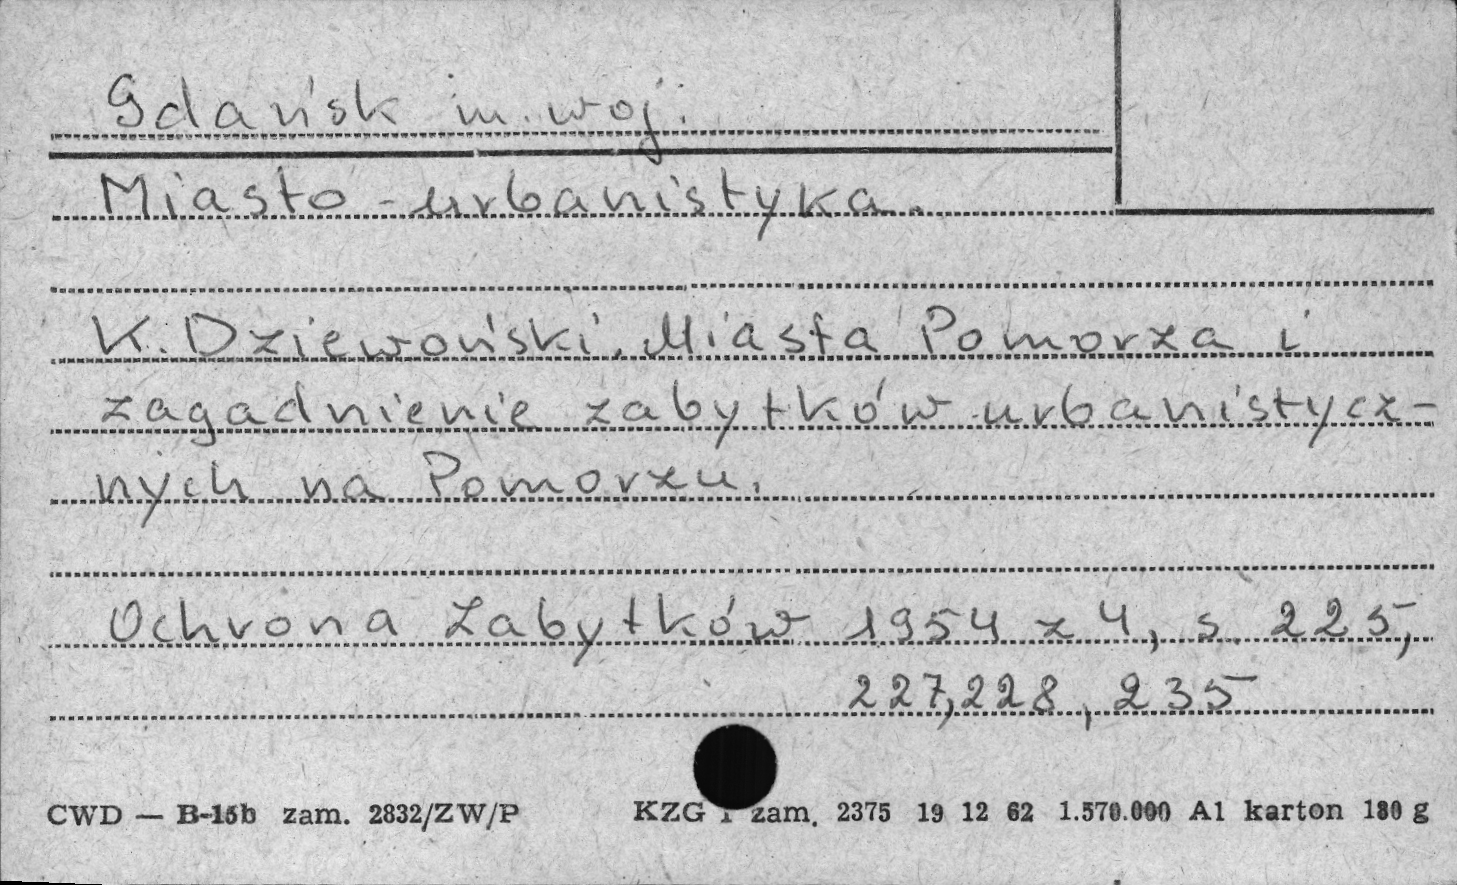 Gdańsk m. woj.
Miasto - urbanistyka.
K. Dziewoński, Miasta Pomorza i
zagadnienie zabytków urbanistycz-
nych na Pomorzu.
Ochrona Zabytków 1954 z 4, s. 225,
227, 228, 235
CWD — B-15b zam. 2832/ZW/P KZG 1 zam. 2375 19 12 62 1.570.000 A1 karton 180 g